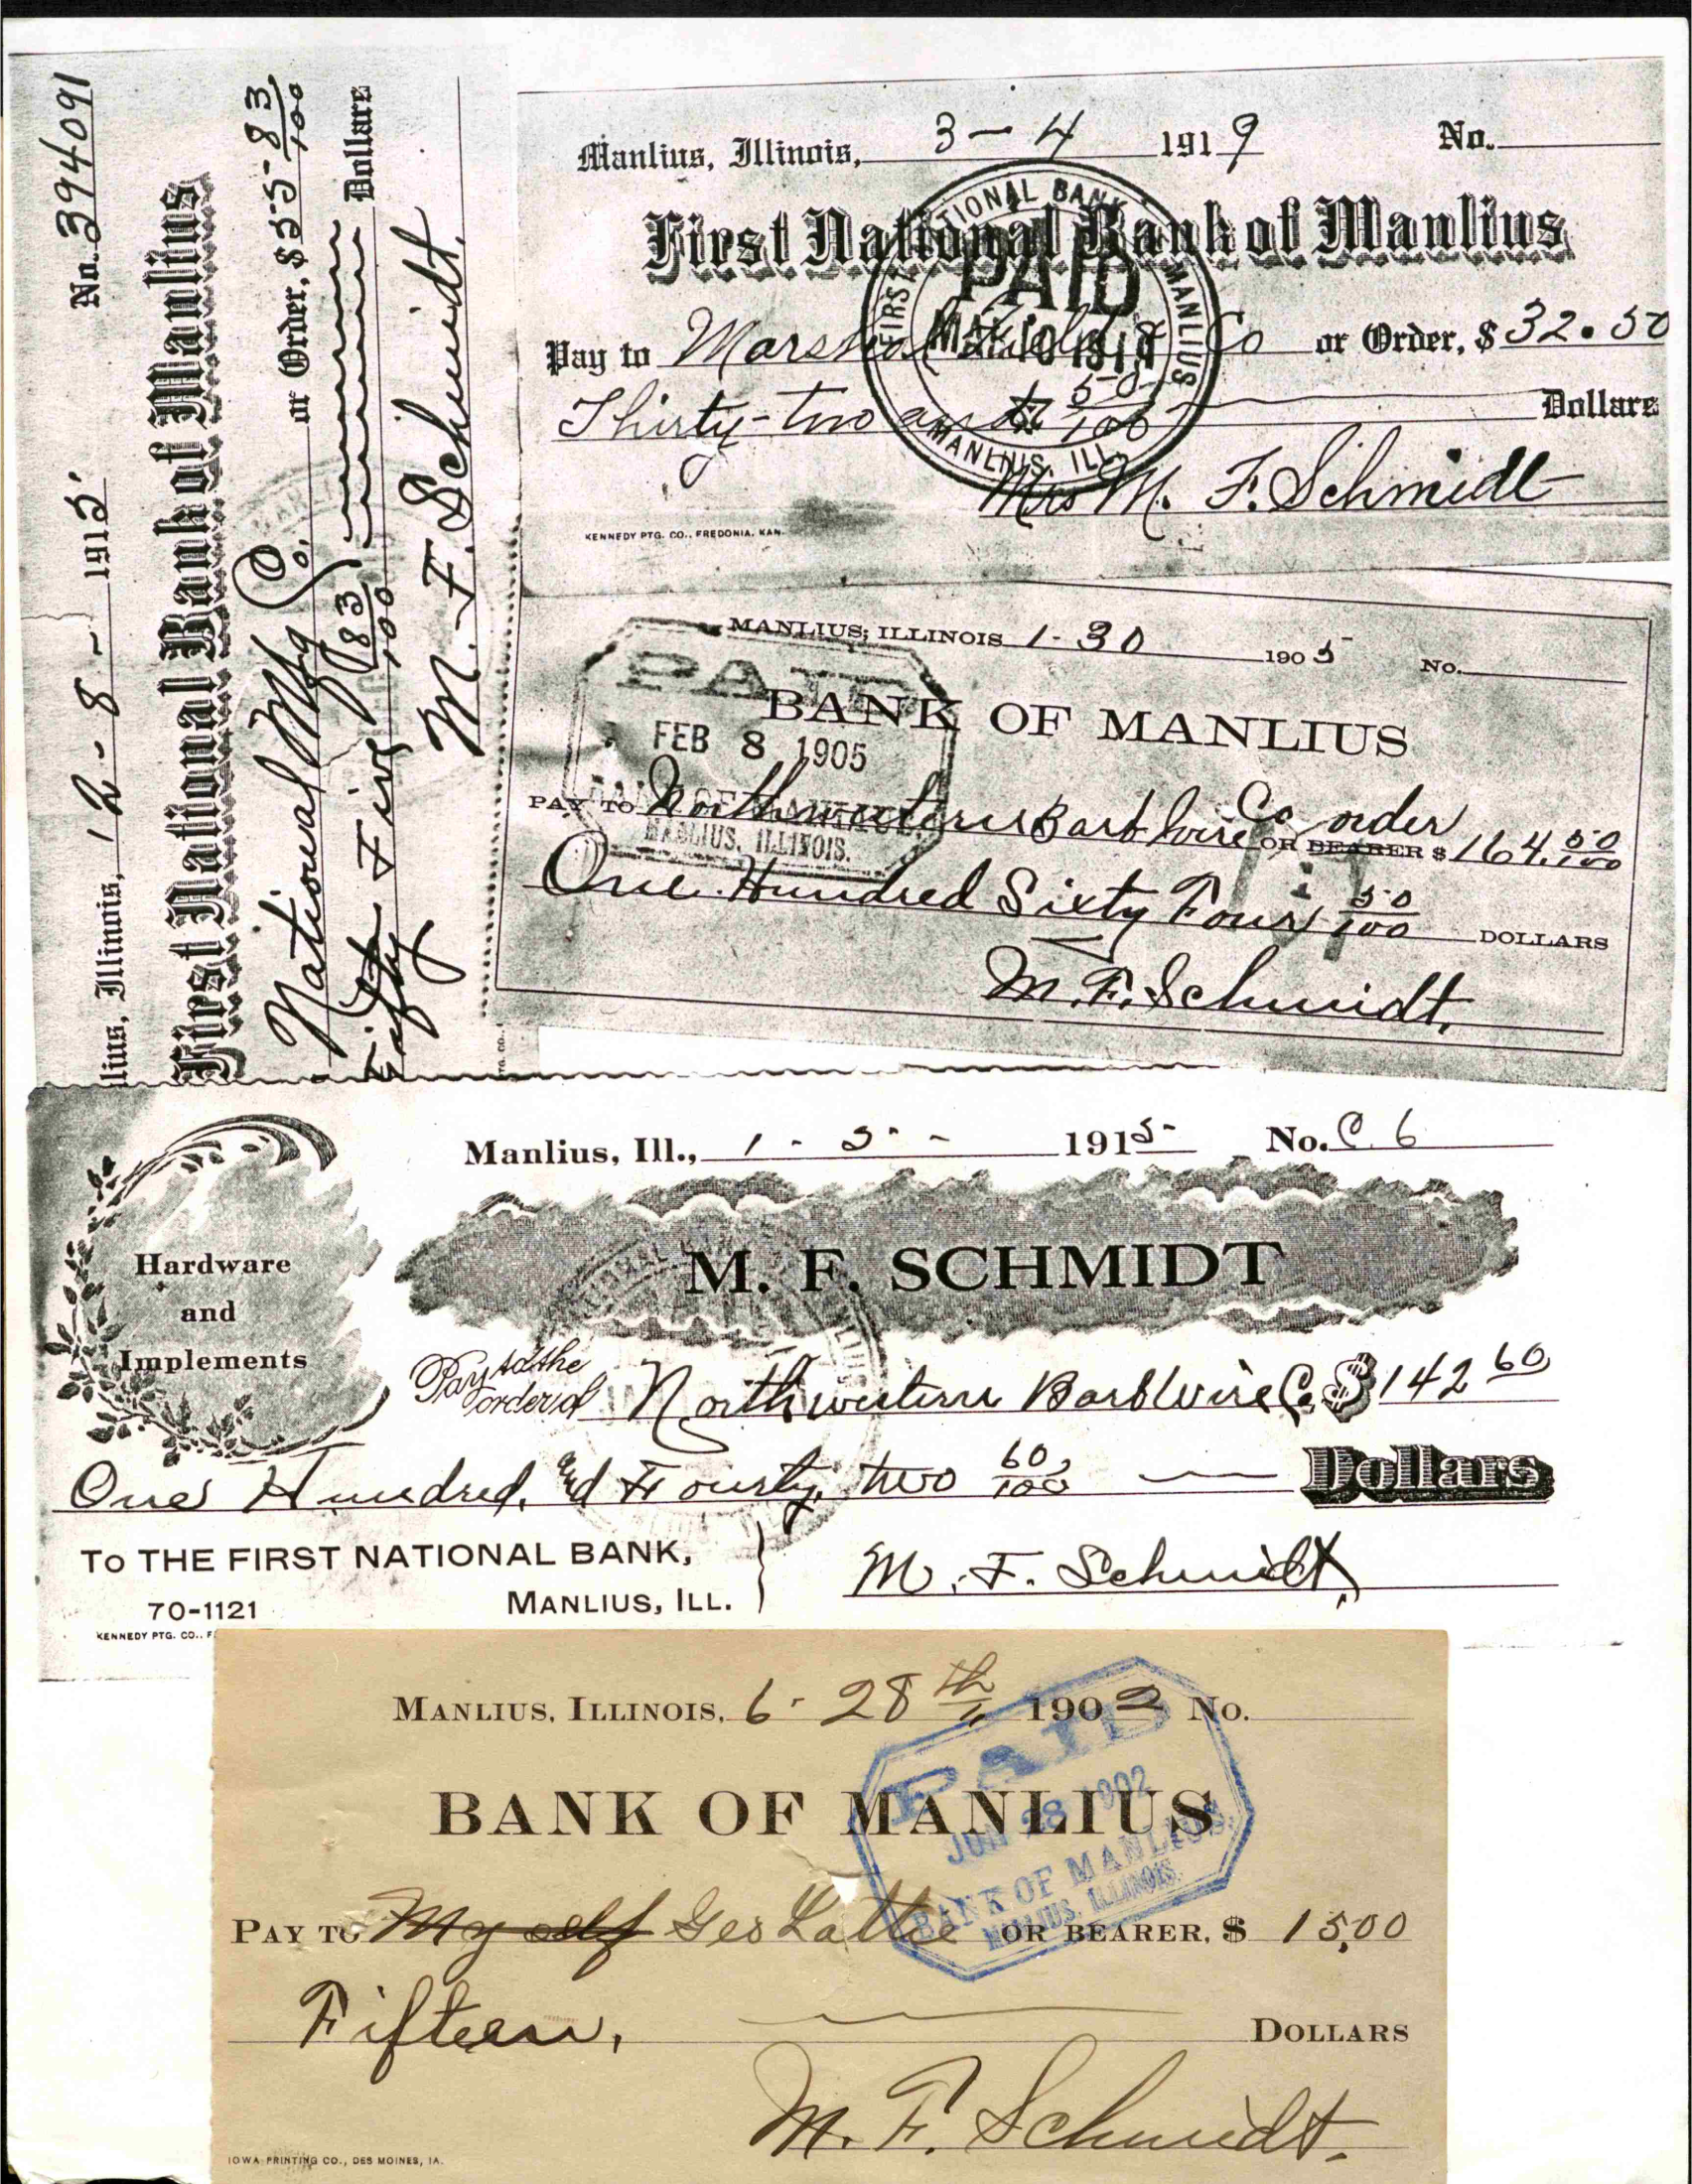 No. 394091
lius, Illinois, 12-8- 1915
First National Bank of Manlius
National Mfg Co. or Order, $55 83/100
Fifty Five 83/100 Dollars
M. F. Schmidt.
TG. CO.
Manlius, Illinois, 3-4 1919 No.
First National Bank of Manlius
FIRST NATIONAL BANK MANLIUS
PAID
MANLIUS, ILL.
Pay to Marshal Field & Co or Order, $ 32.50
Thirty-two and 50/100 Dollars
Mrs M. F. Schmidt
KENNEDY PTG. CO., FREDONIA, KAN.
MANLIUS, ILLINOIS 1-30 1905 No.
PAID
BANK OF MANLIUS
FEB 8 1905
BANK OF MANLIUS
MANLIUS, ILLINOIS.
PAY TO Northwestern Barb Wire Co order OR BEARER $ 164.50/100
One Hundred Sixty Four 50/100 DOLLARS
M. F. Schmidt.
Manlius, Ill., 1-5- 1915 No. C. 6
Hardware
and
Implements
M. F. SCHMIDT
Pay to the order of Northwestern Barb Wire Co. $142 60
One Hundred, and Fourty, two 60/100 Dollars
TO THE FIRST NATIONAL BANK,
70-1121 MANLIUS, ILL.
M. F. Schmidt.
KENNEDY PTG. CO., F
MANLIUS, ILLINOIS, 6-28th 1902 No.
PAID
BANK OF MANLIUS
JUN 28 1902
BANK OF MANLIUS
MANLIUS, ILLINOIS.
PAY TO My self Geo Lattie OR BEARER, $ 15,00
Fifteen, DOLLARS
M. F. Schmidt.
IOWA PRINTING CO., DES MOINES, IA.